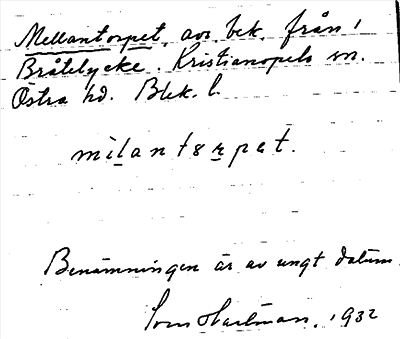 Mellantorpet, avs. bek. från
Bråtelycke. Kristianopels sn.
Östra hd. Blek. l.
milantørpet.
Benämningen är av ungt datum.
Hartman. 1932